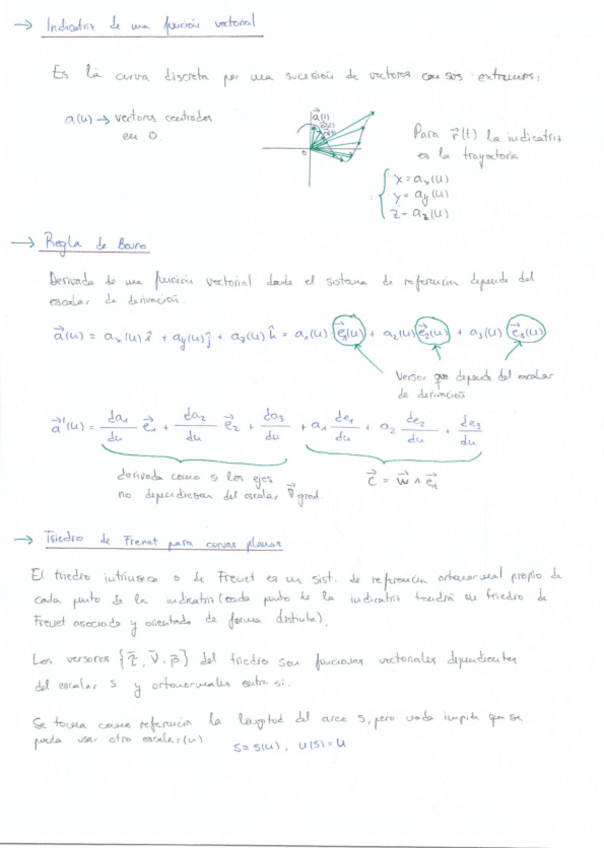 → Indicatriz de una función vectorial
Es la curva discreta por una sucesión de vectores con sus extremos.
a(u) → vectores centrados
en O.
a(1)
O
Para r⃗(t) la indicatriz
es la trayectoria
x = aₓ(u)
y = a_y(u)
z = a_z(u)
→ Regla de Bouro
Derivada de una función vectorial donde el sistema de referencia depende del
escalar de derivación.
a⃗(u) = aₓ(u) î + a_y(u) ĵ + a_z(u) k̂ = a₁(u) e⃗₁(u) + a₂(u) e⃗₂(u) + a₃(u) e⃗₃(u)
Versor que depende del escalar
de derivación
a⃗'(u) = da₁/du e⃗₁ + da₂/du e⃗₂ + da₃/du + a₁ de₁/du + a₂ de₂/du + de₃/du
derivada como si los ejes
no dependiesen del escalar grad.
c⃗ = w⃗ ∧ e⃗₁
→ Triedro de Frenet para curvas planas
El triedro intrínseco o de Frenet es un sist. de referencia ortonormal propio de
cada punto de la indicatriz (cada punto de la indicatriz tendrá su triedro de
Frenet asociado y orientado de forma distinta).
Los versores {τ⃗, ν⃗, β⃗} del triedro son funciones vectoriales dependientes
del escalar s y ortonormales entre si.
Se toma como referencia la longitud del arco s, pero nada impide que se
pueda usar otro escalar (u) s = s(u), u(s) = u